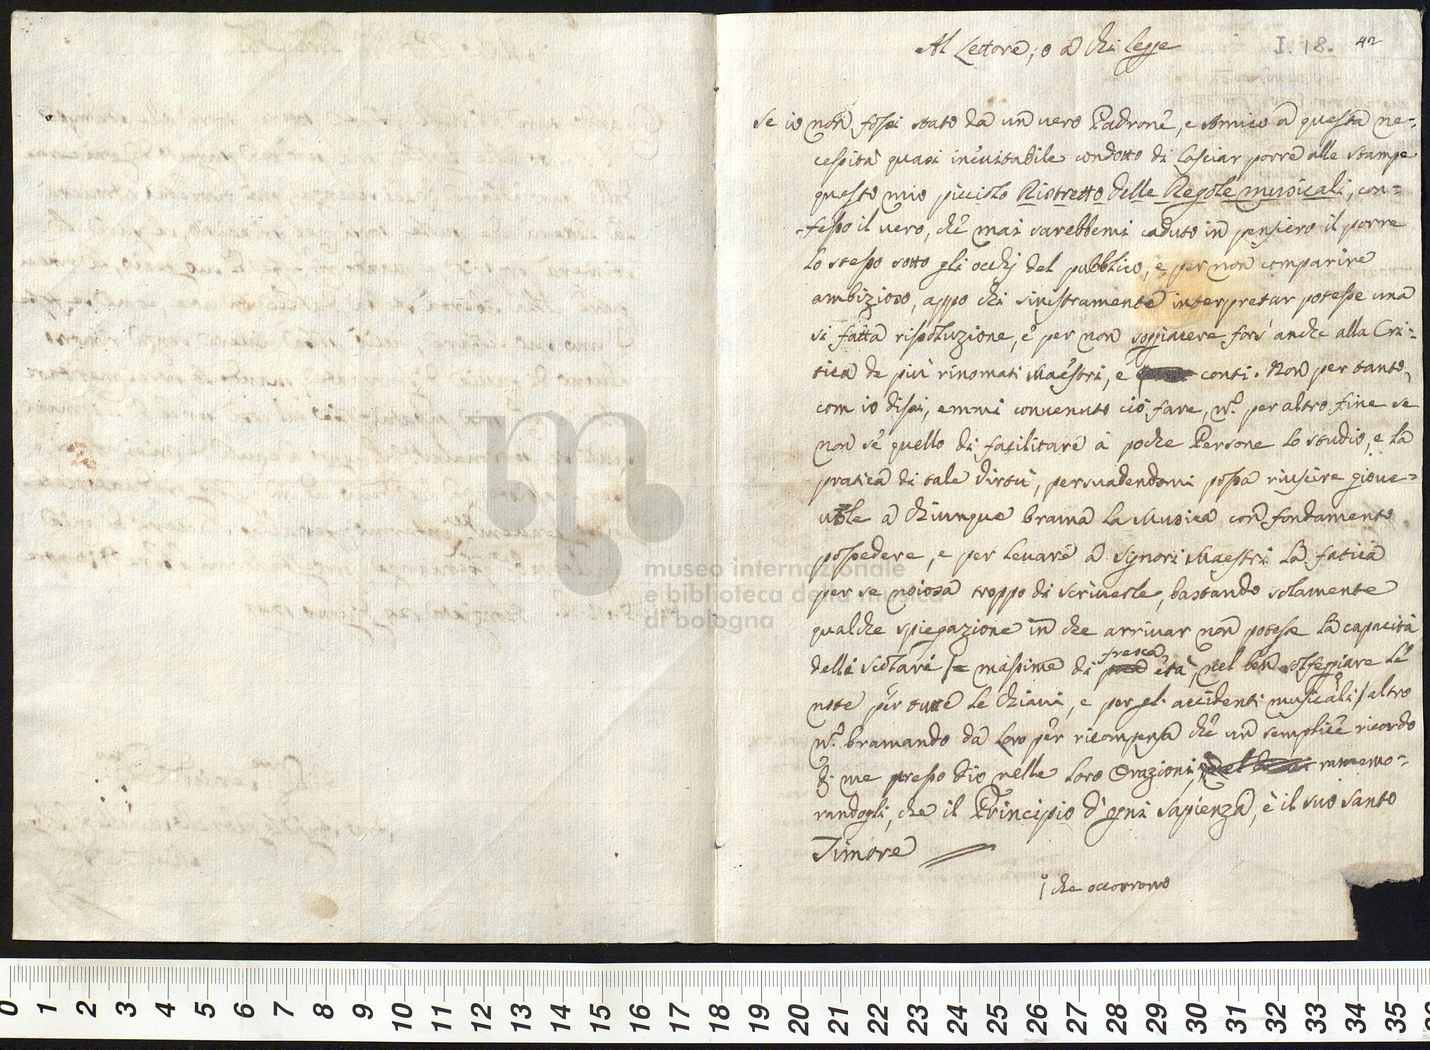 I. 18. 42
Al Lettore, o à chi legge
Se io non fossi stato da un vero Padrone, e Amico à questa ne=
cessità quasi inevitabile condotto di lasciar porre alle stampe
questo mio picciolo Ristretto delle Regole musicali, con=
fesso il vero, che mai sarebbemi caduto in pensiero il porre
lo stesso sotto gli occhj del pubblico, e per non comparire
ambizioso, appo chi sinistramente interpretar potesse una
si fatta risoluzione, e per non soggiacere fors' anche alla Cri=
tica de più rinomati Maestri, e conti. Non per tanto,
com io dissi, emmi convenuto ciò fare, nè per altro fine se
non se quello di facilitare à poche Persone lo studio, e la
pratica di tale virtù, persuadendomi possa riuscire giove=
vole à chiunque brama la Musica con fondamento
possedere, e per levare à Signori Maestri la fatica
per se noiosa troppo di scriverle, bastando solamente
qualche spiegazione in che arrivar non potesse la capacità
delli scolari massime di fresca età, nel ben solfeggiare le
note per tutte le chiavi, e per gl' accidenti musicali / altro
nè bramando da loro per ricompensa che un semplice ricordo
di me presso Dio nelle loro Orazioni, rammemo=
randogli, che il Principio d' ogni sapienza, è il suo santo
Timore
che occorrono
museo internazionale
e biblioteca della musica
di bologna
0 1 2 3 4 5 6 7 8 9 10 11 12 13 14 15 16 17 18 19 20 21 22 23 24 25 26 27 28 29 30 31 32 33 34 35